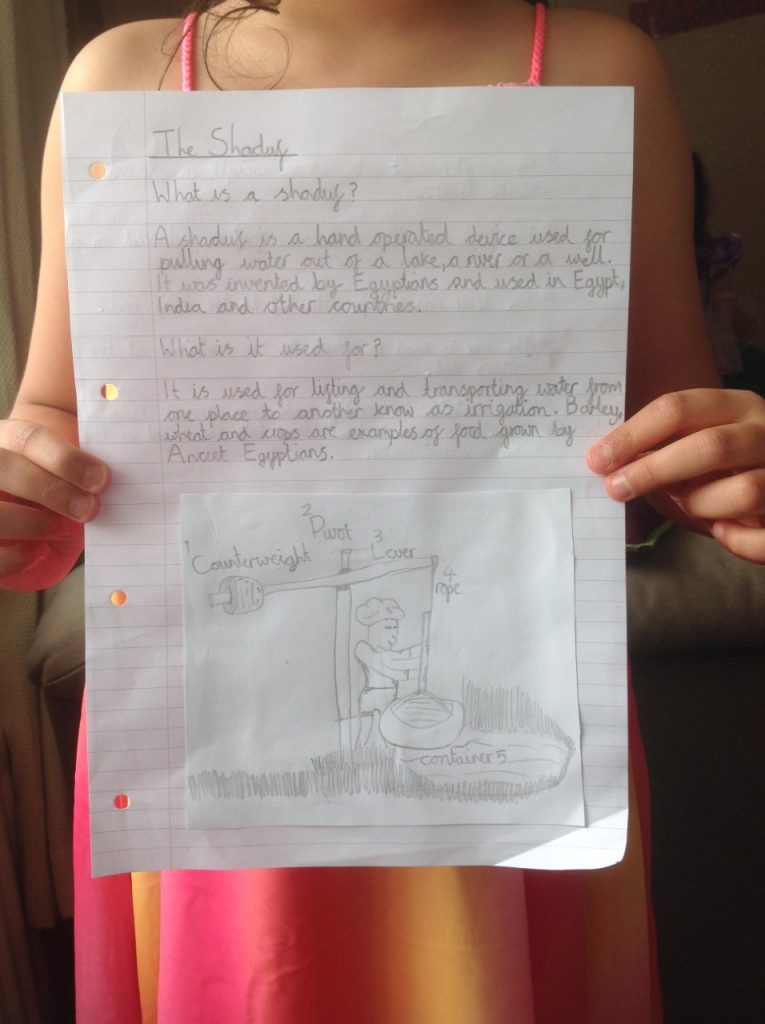 The Shaduf
What is a shaduf?
A shaduf is a hand operated device used for
pulling water out of a lake, a river or a well.
It was invented by Egyptians and used in Egypt,
India and other countries.
What is it used for?
It is used for lifting and transporting water from
one place to another know as irrigation. Barley,
wheat and crops are examples of food grown by
Anciet Egyptians.
2
Pivot
3
Lever
1
Counterweight
4
rope
container 5